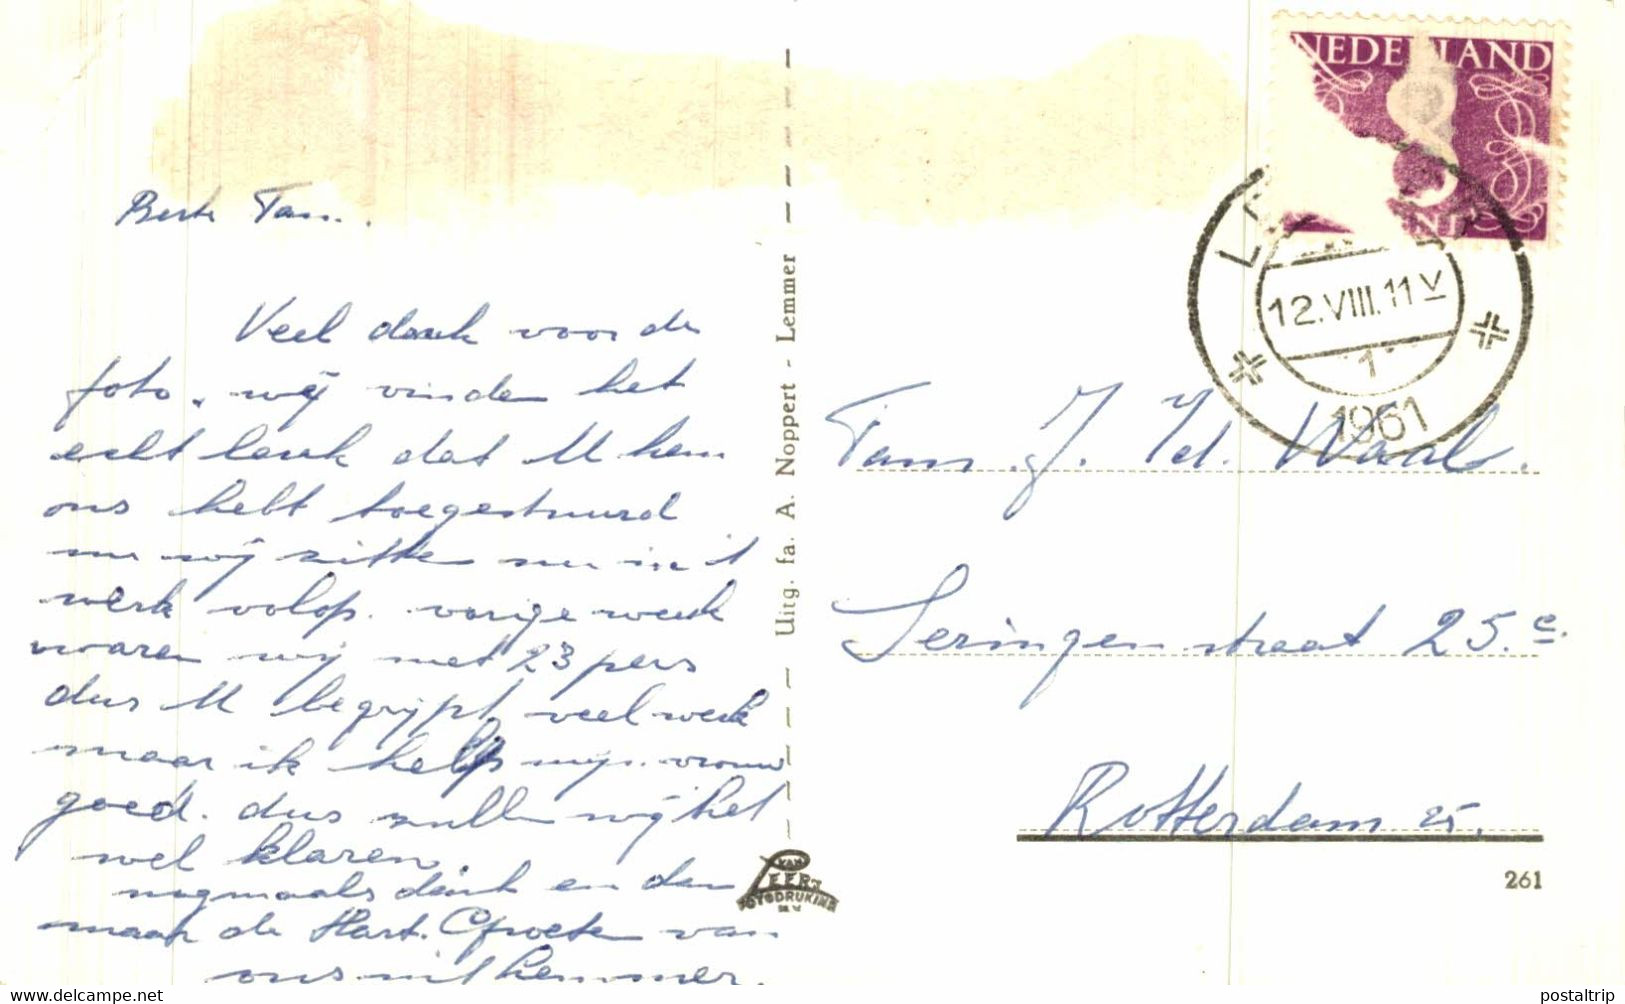 NEDERLAND
12.VIII.11 V
1
1961
Beste Fam.
Veel dank voor de
foto. wij vinden het
echt leuk dat U hem
ons hebt toegestuurd
nu wij zitten nu in 't
werk volop. vorige week
waren wij met 23 pers
dus U begrijpt veel werk
maar ik help mijn vrouw
goed. dus zullen wij het
wel klaren.
nogmaals dank en dan
maar de Hart. Groeten van
ons uit Lemmer.
Uitg. fa. A. Noppert - Lemmer
VAN LEER'S
FOTODRUKIND.
N.V.
Fam. J. Vd. Waal.
Seringenstraat 25.c.
Rotterdam 25.
261
www.delcampe.net
postaltrip